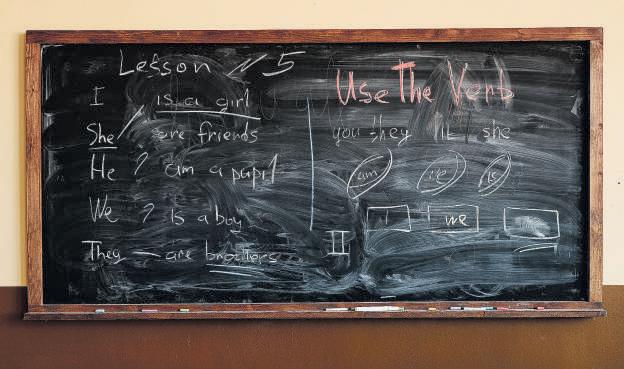 Lesson № 5
I is a girl
She are friends
He ? am a pupil
We ? is a boy
They — are brothers
Use The Verb
you they it she
am is
I we
II